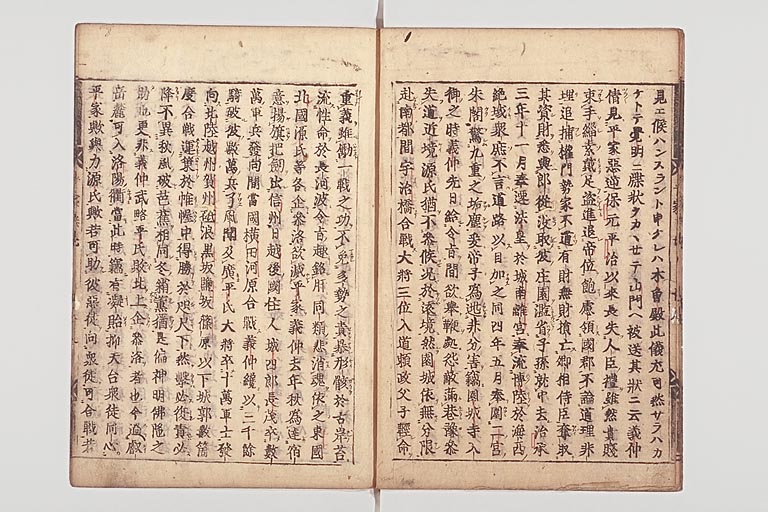 見エ候ハンスラント申タレハ木曾殿此儀尤可然サラハカ
ケトテ覺明ニ牒狀ヲカヽセテ山門ヘ被送其狀ニ云義仲
倩見平家惡逆保元平治以來長失人臣禮雖然貴賤
束手緇素戴足恣進退帝位飽虜領國郡不論道理非
理追捕權門勢家不道有財無財損亡卿相侍臣奪取
其資財悉與郎從沒取彼庄園濫省子孫就中去治承
三年十一月奉遷法皇於城南離宮奉流博陸於海西
絶域衆庶不言道路以目加之同四年五月奉圍二宮
朱閣驚九重之垢塵爰帝子爲逃非分害竊園城寺入
御之時義仲先日給令旨間欲擧鞭處怨敵滿巷豫參
失道近境源氏猶不參候況於遠境然園城依無分限
赴南都間宇治橋合戰大將三位入道頼政父子輕命
重義雖勵一戰之功不免多勢之責暴形骸於古岸苔
流性命於長河波令旨趣銘肝同類悲消魂依之東國
北國源氏等各企參洛欲滅平家義仲去年秋爲達宿
意揚旗把劔出信州日越後國住人城四郎長茂卒數
萬軍兵發向間當國横田河原合戰義仲纔以三千餘
騎破彼數萬兵了風聞及廣平氏大將卒十萬軍士發
向北陸越州賀州砥浪黒坂鹽坂篠原以下城郭數箇
度合戰運策於帷幄中得勝於咫尺下然擊必從責必
降不異秋風破芭蕉相同冬霜薫蕕是偏神明佛陀之
助也更非義仲武略平氏敗北上企參洛者也今過叡
岳麓可入洛陽衢當此時竊有凝貽抑天台衆徒同心
平家歟與力源氏歟若可助彼惡徒向衆徒可合戰若